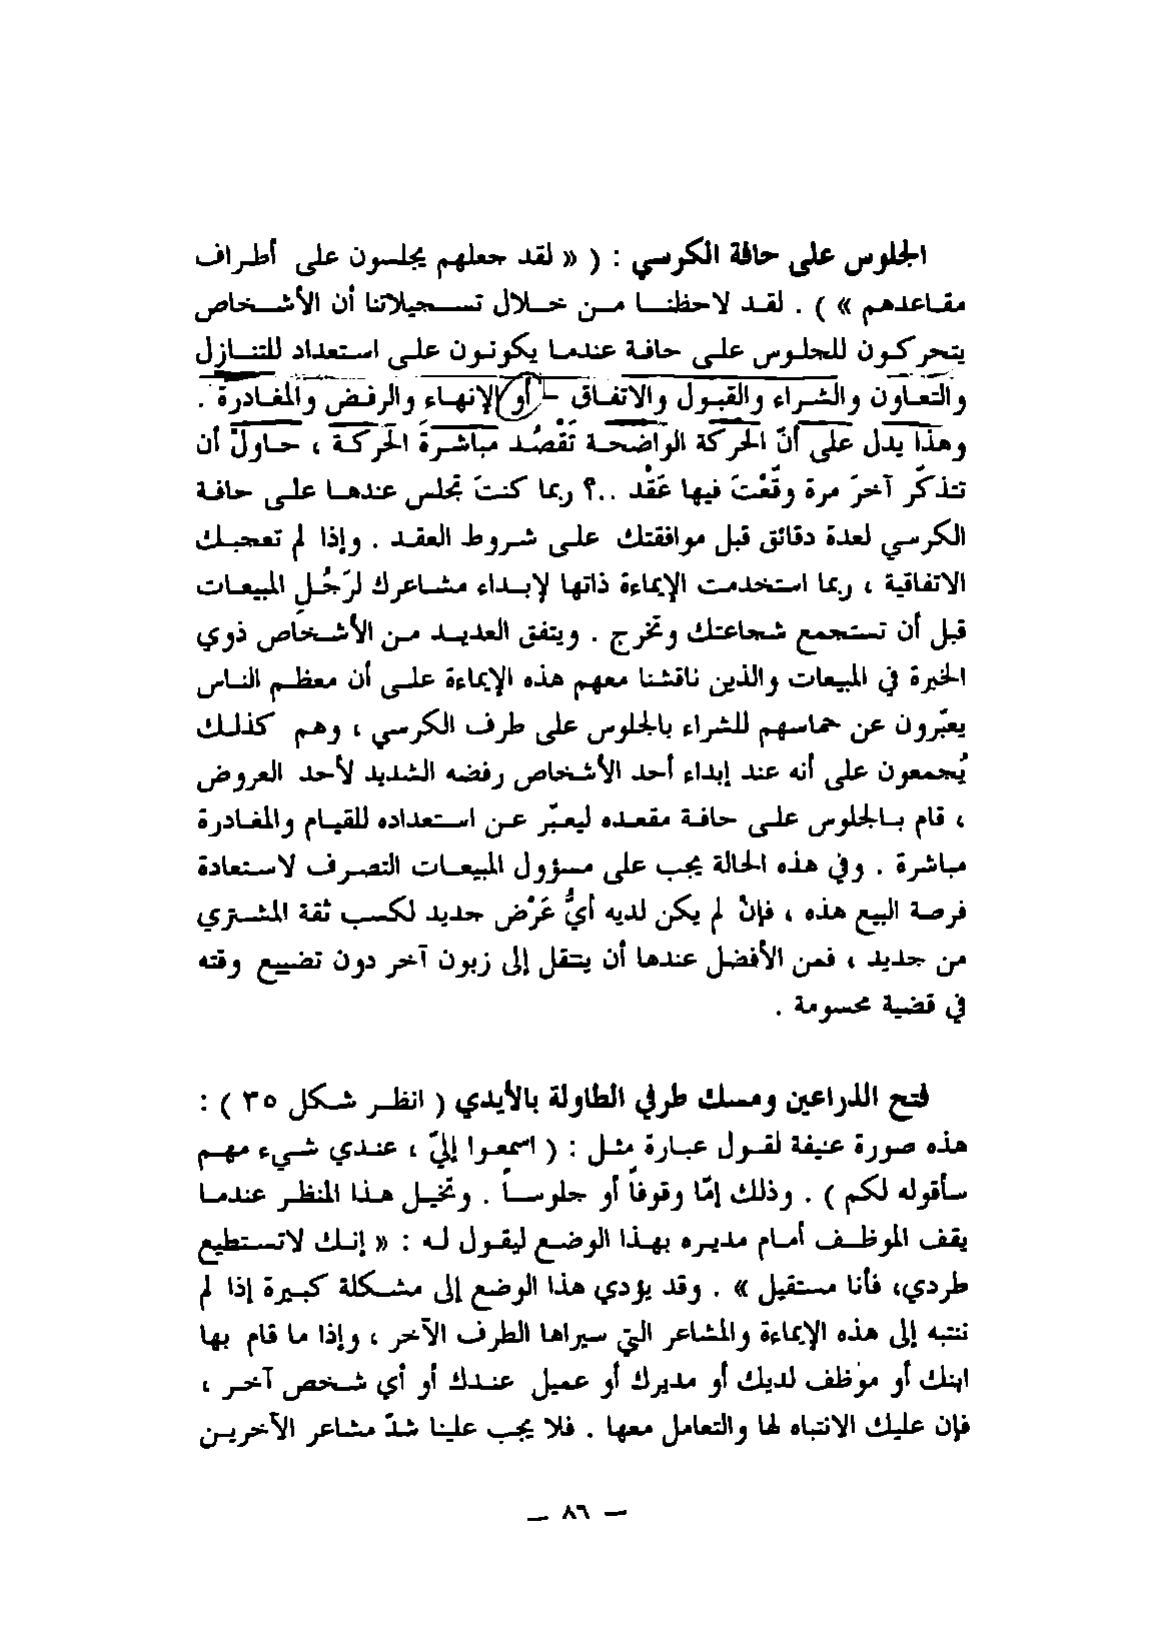 الجلوس على حافة الكرسي : ( « لقد جعلهم يجلسون على أطراف
مقاعدهم » ) . لقد لاحظنا من خلال تسجيلاتنا أن الأشخاص
يتحركون للجلوس على حافة عندما يكونون على استعداد للتنازل
والتعاون والشراء والقبول والاتفاق – أو الإنهاء والرفض والمغادرة .
وهذا يدل على أنّ الحركة الواضحة تَقْصُد مباشرةَ الحركة ، حاولْ أن
تتذكّر آخرَ مرة وقّعْتَ فيها عَقْد ..؟ ربما كنتَ تجلس عندها على حافة
الكرسي لعدة دقائق قبل موافقتك على شروط العقد . وإذا لم تعجبك
الاتفاقية ، ربما استخدمت الإيماءة ذاتها لإبداء مشاعرك لرَجُلِ المبيعات
قبل أن تستجمع شجاعتك وتخرج . ويتفق العديد من الأشخاص ذوي
الخبرة في المبيعات والذين ناقشنا معهم هذه الإيماءة على أن معظم الناس
يعبّرون عن حماسهم للشراء بالجلوس على طرف الكرسي ، وهم كذلك
يُجمعون على أنه عند إبداء أحد الأشخاص رفضه الشديد لأحد العروض
، قام بالجلوس على حافة مقعده ليعبّر عن استعداده للقيام والمغادرة
مباشرة . وفي هذه الحالة يجب على مسؤول المبيعات التصرف لاستعادة
فرصة البيع هذه ، فإنْ لم يكن لديه أيُّ عَرْض جديد لكسب ثقة المشتري
من جديد ، فمن الأفضل عندها أن ينتقل إلى زبون آخر دون تضييع وقته
في قضية محسومة .
فتح الذراعين ومسك طرفي الطاولة بالأيدي ( انظر شكل ٣٥ ) :
هذه صورة عنيفة لقول عبارة مثل : ( اسمعوا إليّ ، عندي شيء مهم
سأقوله لكم ) . وذلك إمّا وقوفاً أو جلوساً . وتخيل هذا المنظر عندما
يقف الموظف أمام مديره بهذا الوضع ليقول له : « إنك لاتستطيع
طردي، فأنا مستقيل » . وقد يؤدي هذا الوضع إلى مشكلة كبيرة إذا لم
ننتبه إلى هذه الإيماءة والمشاعر التي سيراها الطرف الآخر ، وإذا ما قام بها
ابنك أو موظف لديك أو مديرك أو عميل عندك أو أي شخص آخر ،
فإن عليك الانتباه لها والتعامل معها . فلا يجب علينا شدّ مشاعر الآخرين
— ٨٦ —